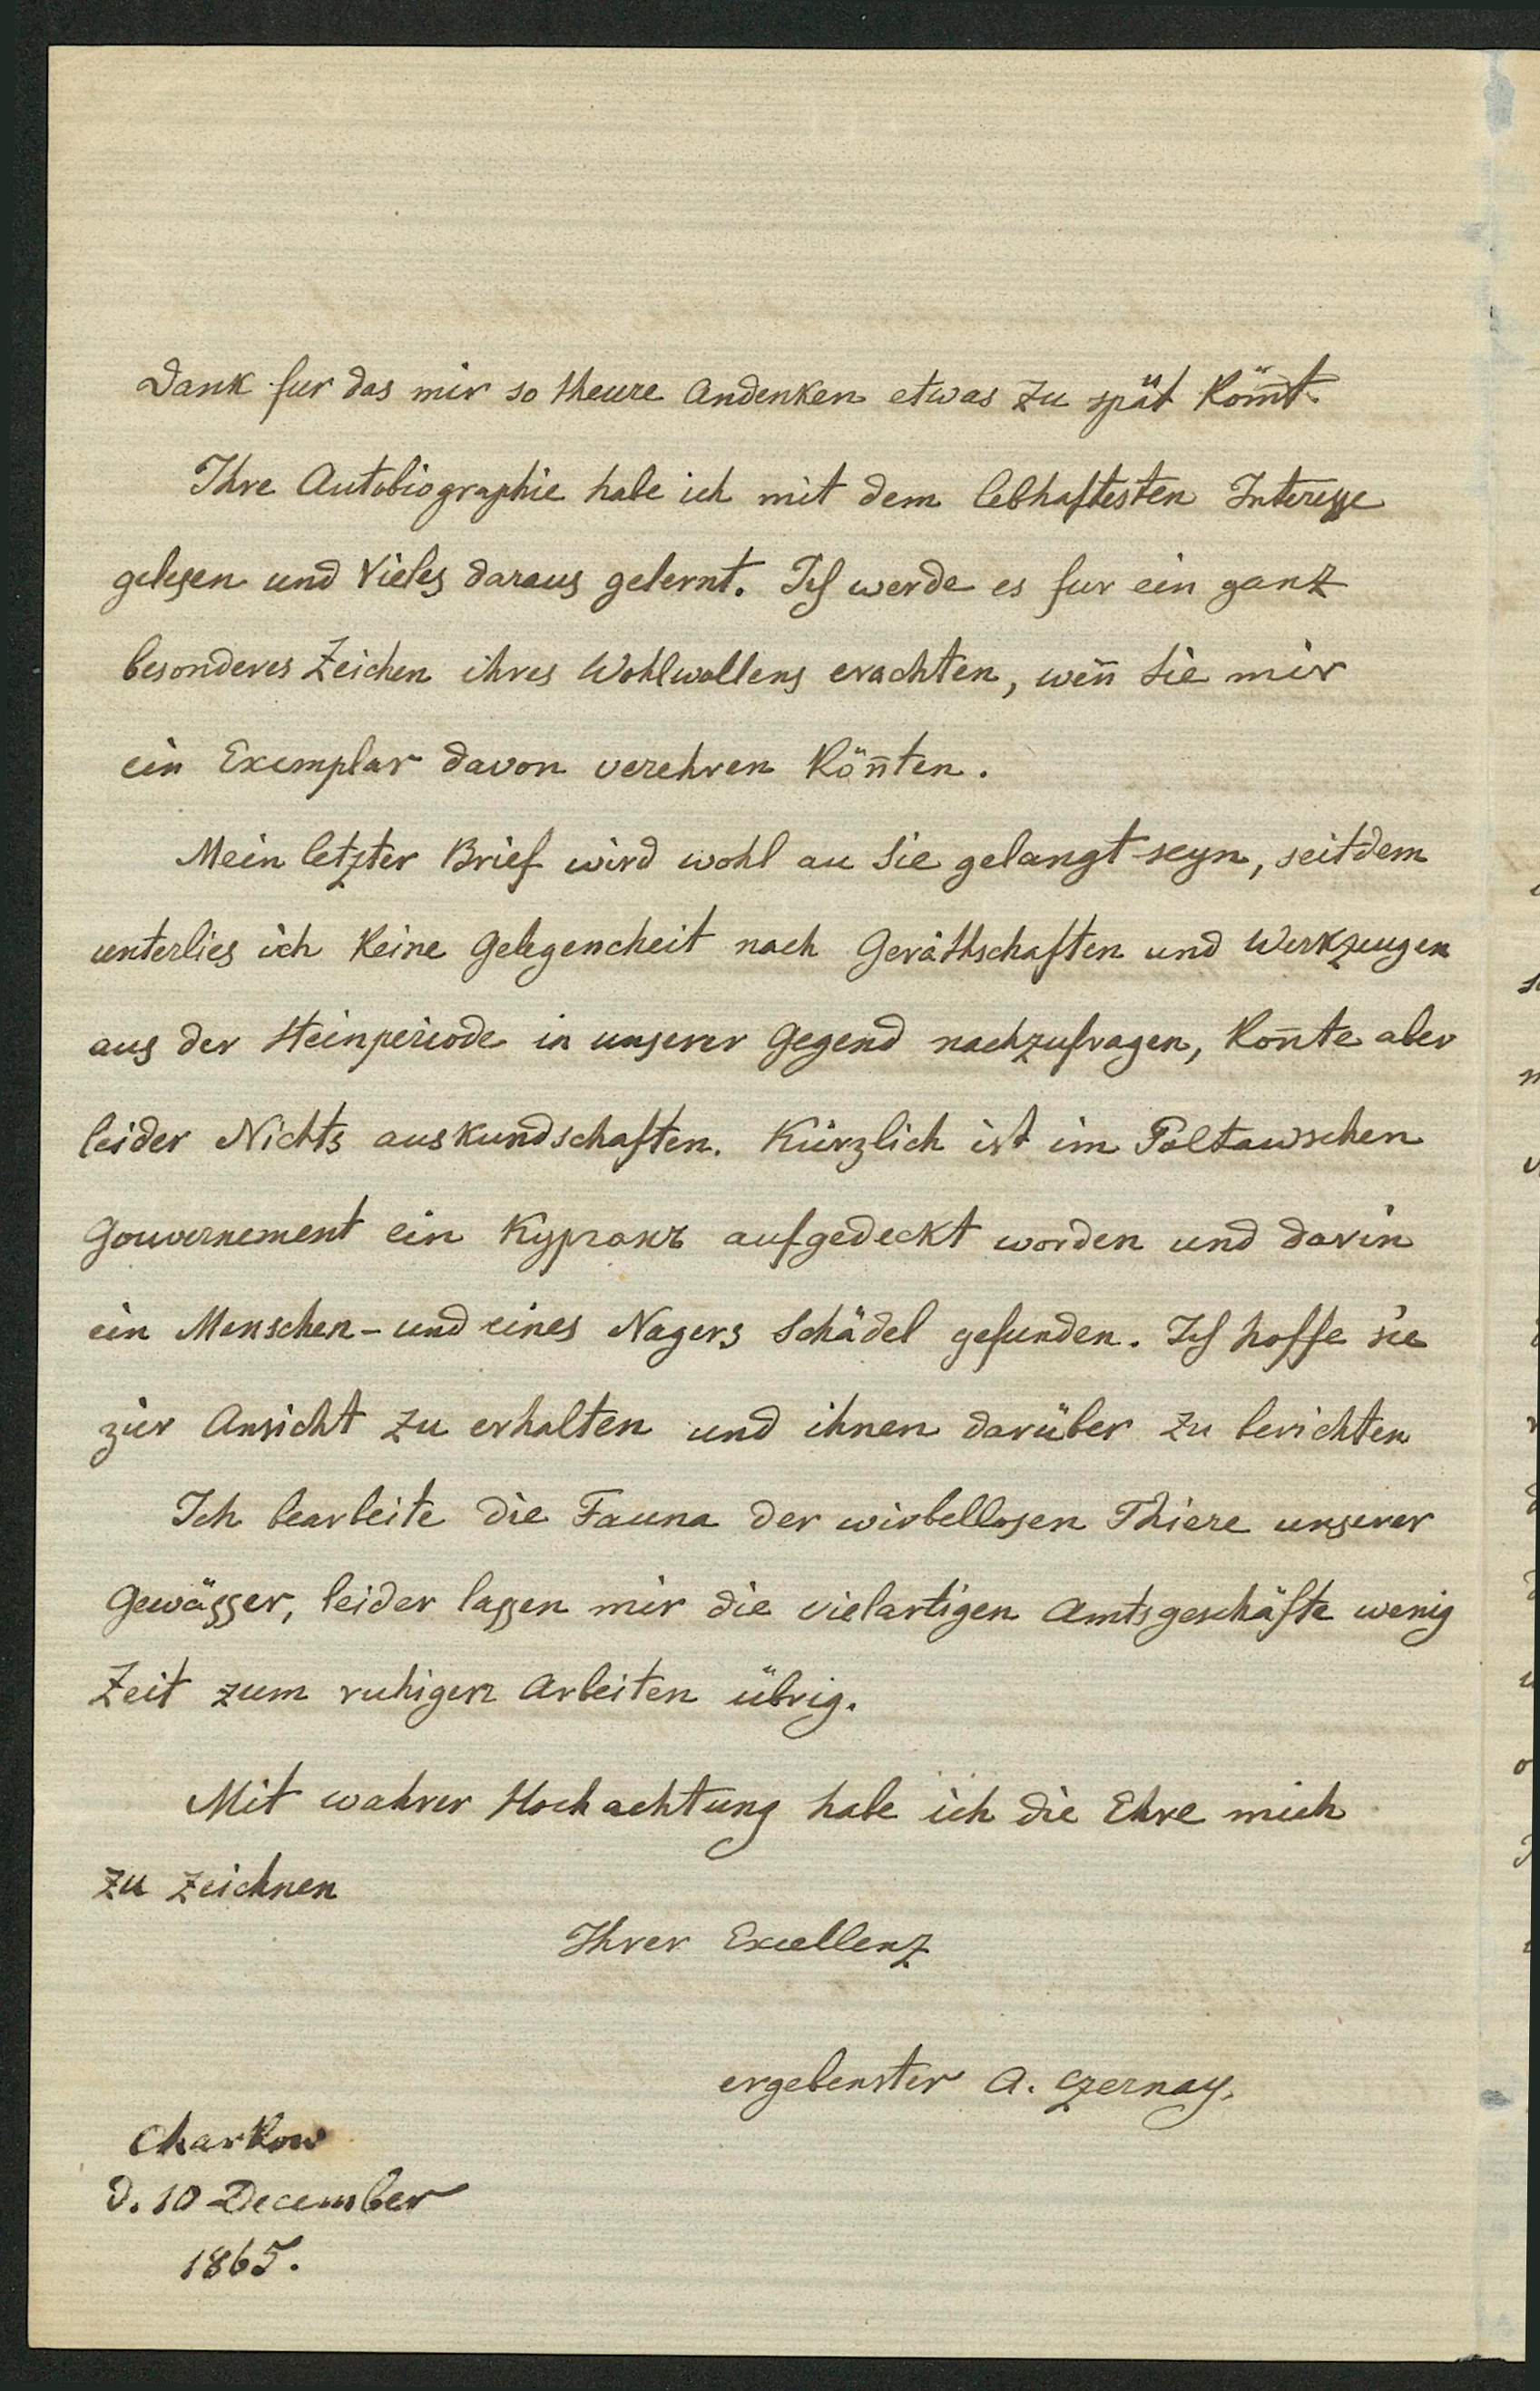 Dank fur das mir so theure Andenken etwas zu spät köm̄t.
Ihre Autobiographie habe ich mit dem lebhaftesten Interesse
gelesen und Vieles daraus gelernt. Ich werde es fur ein ganz
besonderes Zeichen ihres Wohlwollens erachten, wen̄ Sie mir
ein Exemplar davon verehren kön̄ten.
Mein letzter Brief wird wohl an Sie gelangt seyn, seitdem
unterlies ich keine Gelegencheit nach Geräthschaften und Werkzeugen
aus der Steinperiode in unserer Gegend nachzufragen, kon̄te aber
leider Nichts auskundschaften. Kürzlich ist im Poltawschen
Gouvernement ein Курганъ aufgedeckt worden und darin
ein Menschen- und eines Nagers Schädel gefunden. Ich hoffe sie
zur Ansicht zu erhalten und ihnen darüber zu berichten
Ich bearbeite die Fauna der wirbellosen Thiere unserer
Gewässer, leider lassen mir die vielartigen Amtsgeschäfte wenig
Zeit zum ruhigen Arbeiten übrig.
Mit wahrer Hochachtung habe ich die Ehre mich
zu zeichnen
Ihrer Excellenz
ergebenster A. Czernay.
Charkow
d. 10 December
1865.